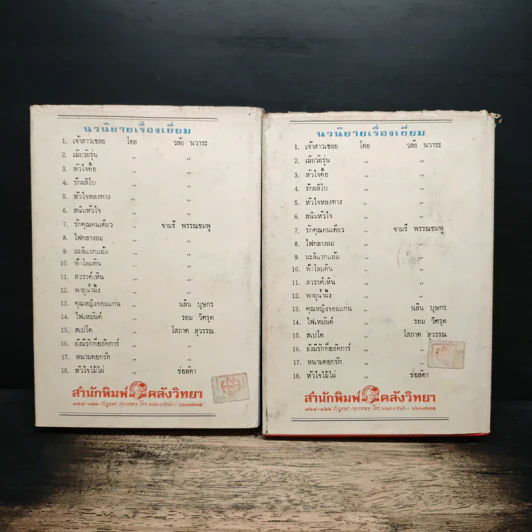 นวนิยายเรื่องเยี่ยม
1. เจ้าสาวเชลย โดย วลัย นวาระ
2. เมียวัยรุ่น ,, ,,
3. หัวใจคือ ,, ,,
4. รักผลิใบ ,, ,,
5. หัวใจหลงทาง ,, ,,
6. สนิมหัวใจ ,, ,,
7. รักคุณคนเดียว ,, ชามรี พรรณชมพู
8. ไฟกลางลม ,, ,,
9. มะลิแรกแย้ม ,, ,,
10. ฟ้าโลมดิน ,, ,,
11. สวรรค์เห็น ,, ,,
12. พายุน้ำผึ้ง ,, ,,
13. คุณหญิงจอมแก่น ,, นลิน บุษกร
14. ไฟเหมันต์ ,, รอม วิศรุต
15. สเปโต ,, โสภาค สุวรรณ
16. ยังมีรักที่อยัคการ์ ,, ,,
17. หนามดอกรัก ,, ,,
18. หัวใจไม้ไผ่ ,, ช่อลัดา
สำนักพิมพ์ คลังวิทยา
นวนิยายเรื่องเยี่ยม
1. เจ้าสาวเชลย โดย วลัย นวาระ
2. เมียวัยรุ่น ,, ,,
3. หัวใจคือ ,, ,,
4. รักผลิใบ ,, ,,
5. หัวใจหลงทาง ,, ,,
6. สนิมหัวใจ ,, ,,
7. รักคุณคนเดียว ,, ชามรี พรรณชมพู
8. ไฟกลางลม ,, ,,
9. มะลิแรกแย้ม ,, ,,
10. ฟ้าโลมดิน ,, ,,
11. สวรรค์เห็น ,, ,,
12. พายุน้ำผึ้ง ,, ,,
13. คุณหญิงจอมแก่น ,, นลิน บุษกร
14. ไฟเหมันต์ ,, รอม วิศรุต
15. สเปโต ,, โสภาค สุวรรณ
16. ยังมีรักที่อยัคการ์ ,, ,,
17. หนามดอกรัก ,, ,,
18. หัวใจไม้ไผ่ ,, ช่อลัดา
สำนักพิมพ์ คลังวิทยา